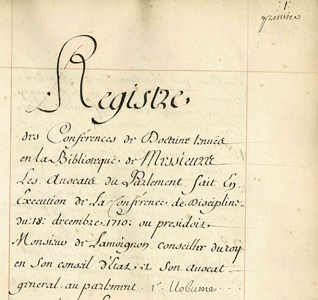 1
premier
Registre,
des Conférences de Doctrine tenues
en la Biblioteque, de Messieurs
Les Avocats du Parlement fait En
Execution de La Conference, de discipline
du 18e decembre, 1710. ou presidoit
Monsieur de Lamoignon conseiller du roy
en son conseil d'Etat, et son avocat
general au parlement 1er Volume